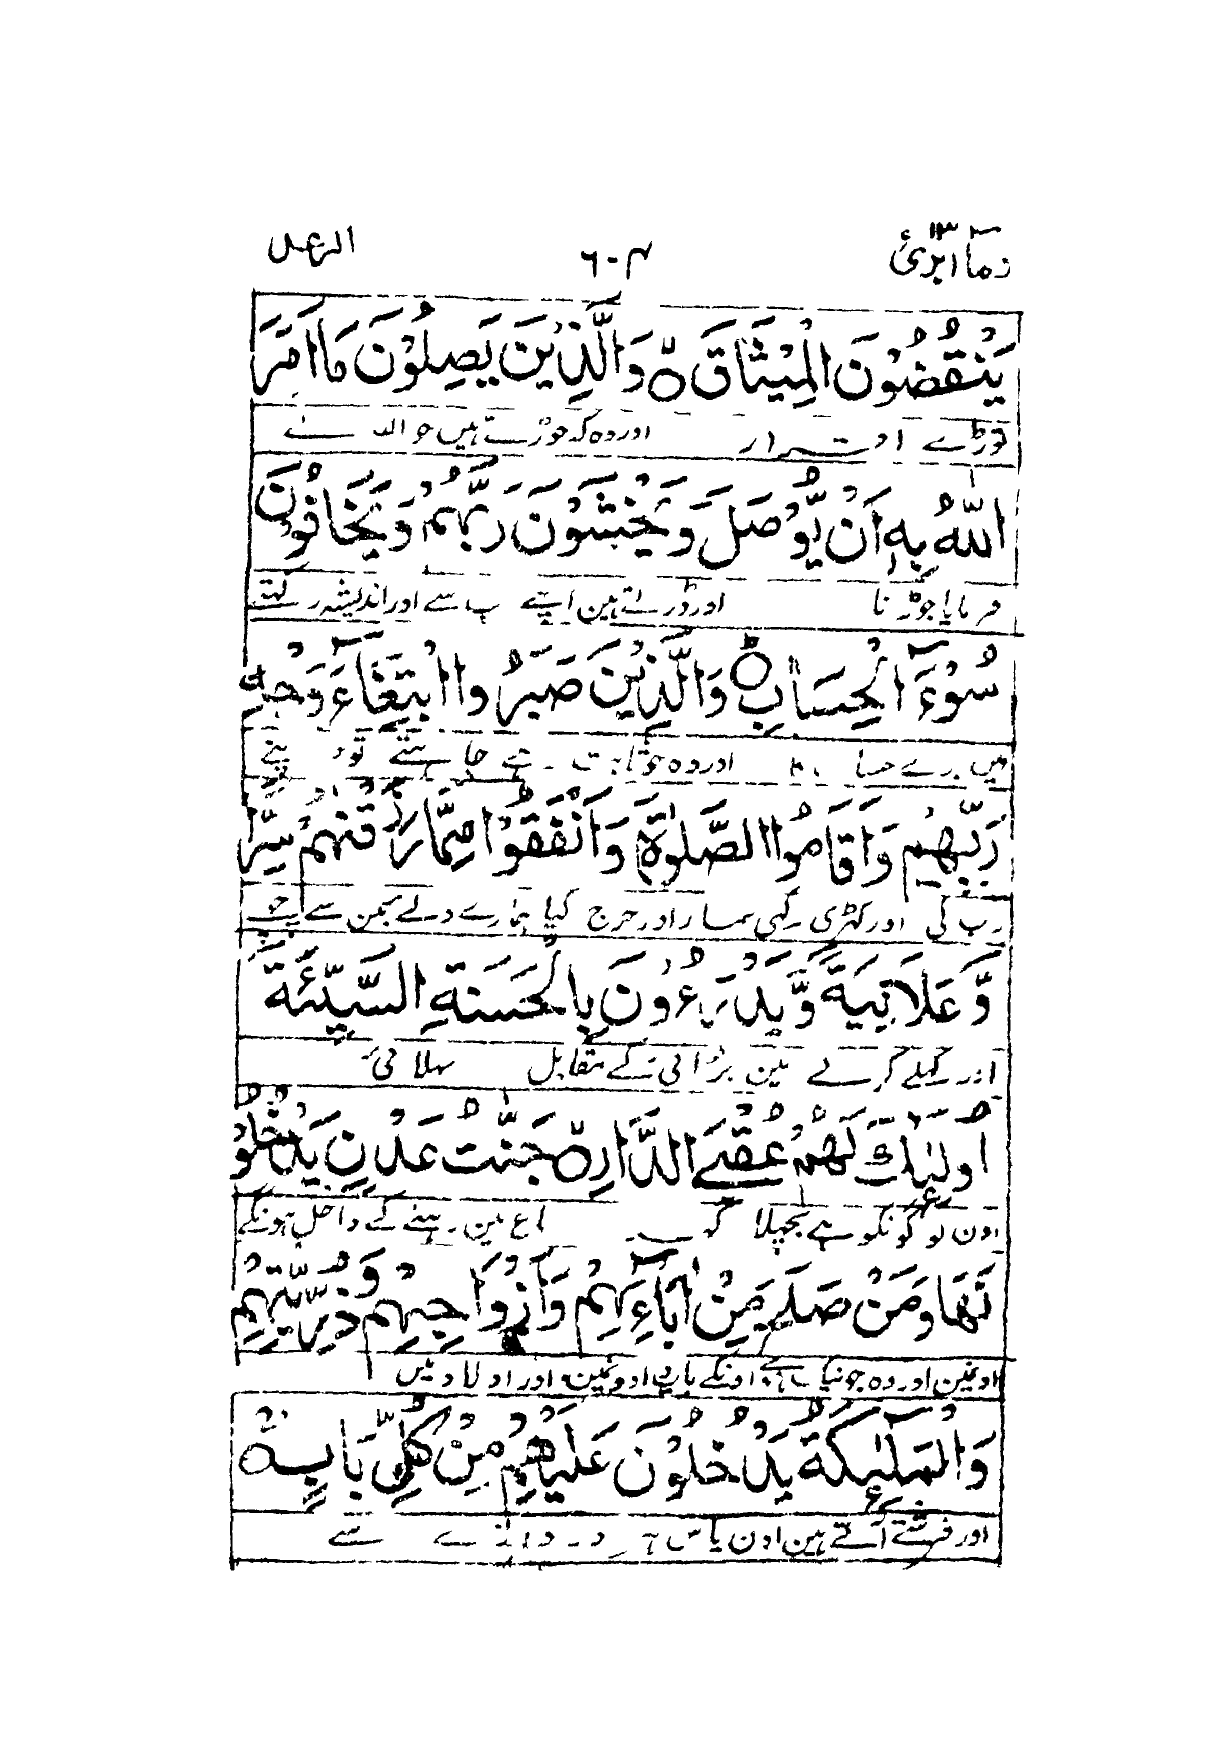 وما ابرئ ١٣ ٦٠٣ الرعد
يَنْقُضُوْنَ الْمِيْثَاقَ ۝ وَالَّذِيْنَ يَصِلُوْنَ مَا اَمَرَ
توڑتے اور وہ کہ جوڑتے ہیں جو اللہ نے
اللّٰهُ بِهٖ اَنْ يُّوْصَلَ وَيَخْشَوْنَ رَبَّهُمْ وَيَخَافُوْنَ
فرمایا جوڑنا اور ڈرتے ہین اپنے رب سے اور اندیشہ رکتے
سُوْٓءَ الْحِسَابِ ۝ وَالَّذِيْنَ صَبَرُوا ابْتِغَآءَ وَجْهِ
ہیں برے حساب کا اور وہ جو ثابت رہے چاہتے توجہ اپنے
رَبِّهِمْ وَاَقَامُوا الصَّلٰوةَ وَاَنْفَقُوْا مِمَّا رَزَقْنٰهُمْ سِرًّا
رب کی اور کھڑی رکہی نماز اور خرچ کیا ہمارے دئے مین سے چہپے
وَّعَلَانِيَةً وَّيَدْرَءُوْنَ بِالْحَسَنَةِ السَّيِّئَةَ
اور کہلے کرتے ہین برائی کے مقابل بہلائی
اُولٰٓئِكَ لَهُمْ عُقْبَى الدَّارِ ۝ جَنّٰتُ عَدْنٍ يَّدْخُلُوْ
اون لوگونکو ہے پچہلا گہر باغ ہین رہنے کے داخل ہونگے
نَهَا وَمَنْ صَلَحَ مِنْ اٰبَآئِهِمْ وَاَزْوَاجِهِمْ وَذُرِّيّٰتِهِمْ
اونمین اور وہ جو نیک اونکے باپ اور اولاد مین
وَالْمَلٰٓئِكَةُ يَدْخُلُوْنَ عَلَيْهِمْ مِنْ كُلِّ بَابٍ ۝
اور فرشتے آتے ہین اون پاس ہر دروازے سے